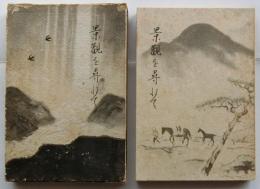 景観を尋ねて
景観を尋ねて